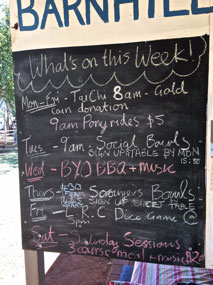 BARNHILL
What's on this Week!
Mon-Fri - Tai Chi 8am - Gold
coin donation
9am Pony rides $5
Tues - 9am - Social Bowls
SIGN UP @ TABLE BY MON
15:30
Wed - BYO BBQ + music
Thurs - Scroungers Bowls
SIGN UP
Fri - L.R.C Disco Game
5pm
Sat - Saturday Sessions
3 course meal + music $20